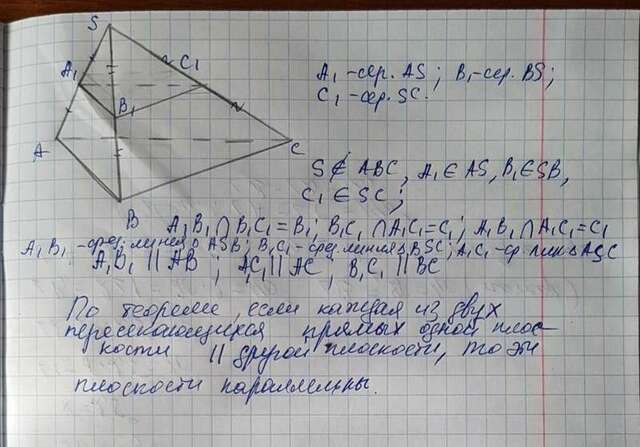 S
A₁
C₁
B₁
A
C
B
A₁ -сер. AS; B₁ -сер. BS;
C₁ -сер. SC.
S ∉ ABC, A₁ ∈ AS, B₁ ∈ SB,
C₁ ∈ SC;
A₁B₁ ∩ B₁C₁ = B₁; B₁C₁ ∩ A₁C₁ = C₁; A₁B₁ ∩ A₁C₁ = C₁
A₁B₁ -сред. линия Δ ASB; B₁C₁ -сред. линия Δ BSC; A₁C₁ -ср. лин Δ ASC
A₁B₁ || AB; AC₁ || AC, B₁C₁ || BC
По теореме, если каждая из двух
пересекающихся прямых одной плос-
кости || другой плоскости, то эти
плоскости параллельны.